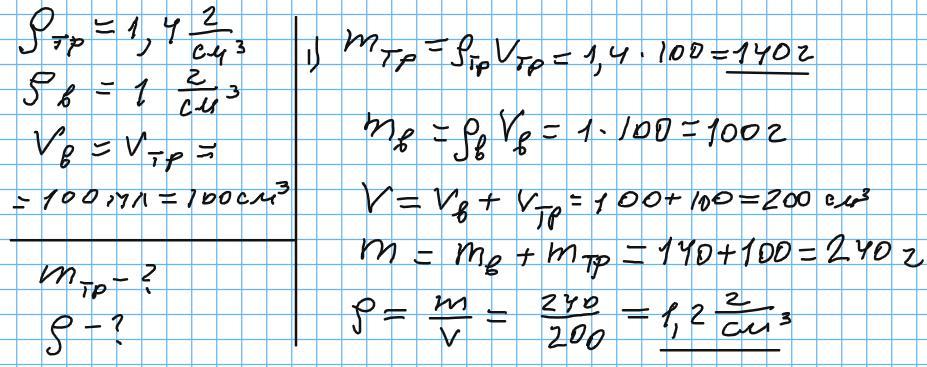 ρтр = 1,4 г/см³
ρв = 1 г/см³
Vв = Vтр =
= 100 мл = 100 см³
mтр - ?
ρ - ?
1) mтр = ρтр Vтр = 1,4 · 100 = 140 г
mв = ρв Vв = 1 · 100 = 100 г
V = Vв + Vтр = 100 + 100 = 200 см³
m = mв + mтр = 140 + 100 = 240 г
ρ = m/V = 240/200 = 1,2 г/см³